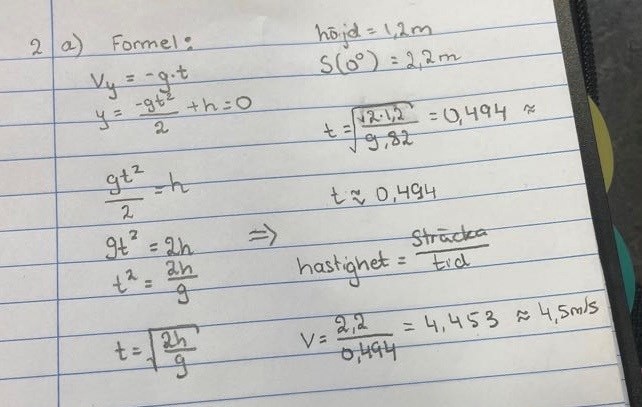 2 a) Formel:
Vy = -g·t
y = -gt²/2 + h = 0
gt²/2 = h
gt² = 2h
t² = 2h/g
t = √(2h/g)
⇒
höjd = 1,2m
S(0°) = 2,2m
t = √(√2·1,2/9,82) = 0,494 ≈
t ≈ 0,494
hastighet = Sträcka/tid
V = 2,2/0,494 = 4,453 ≈ 4,5m/s